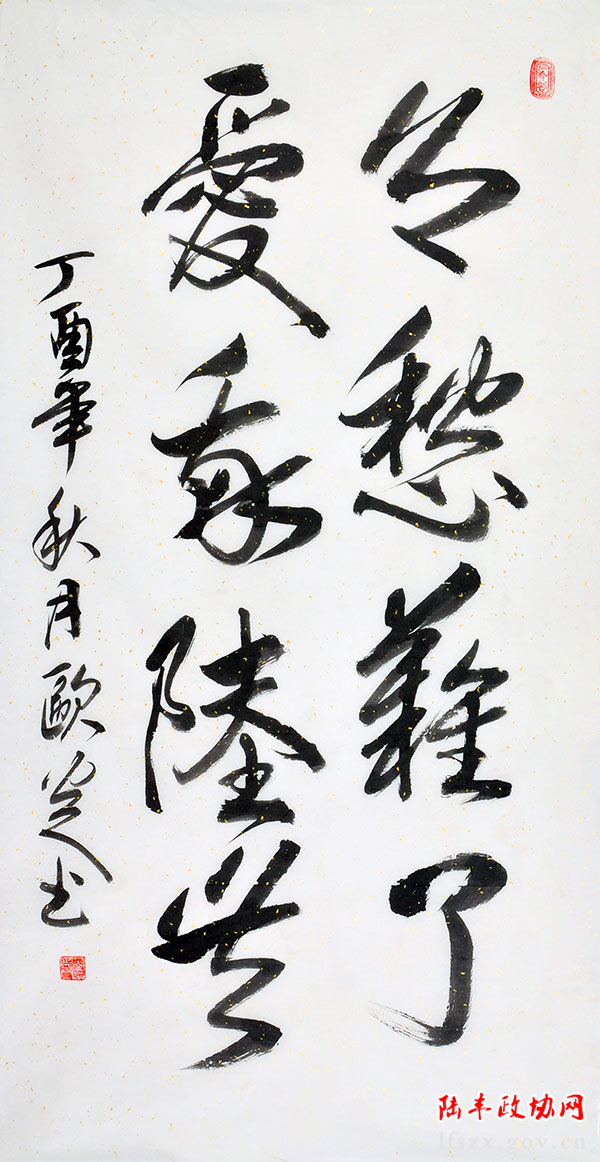 乡愁難了
愛我陸豐
丁酉年秋月歐书
陆丰政协网
lfszx.gov.cn